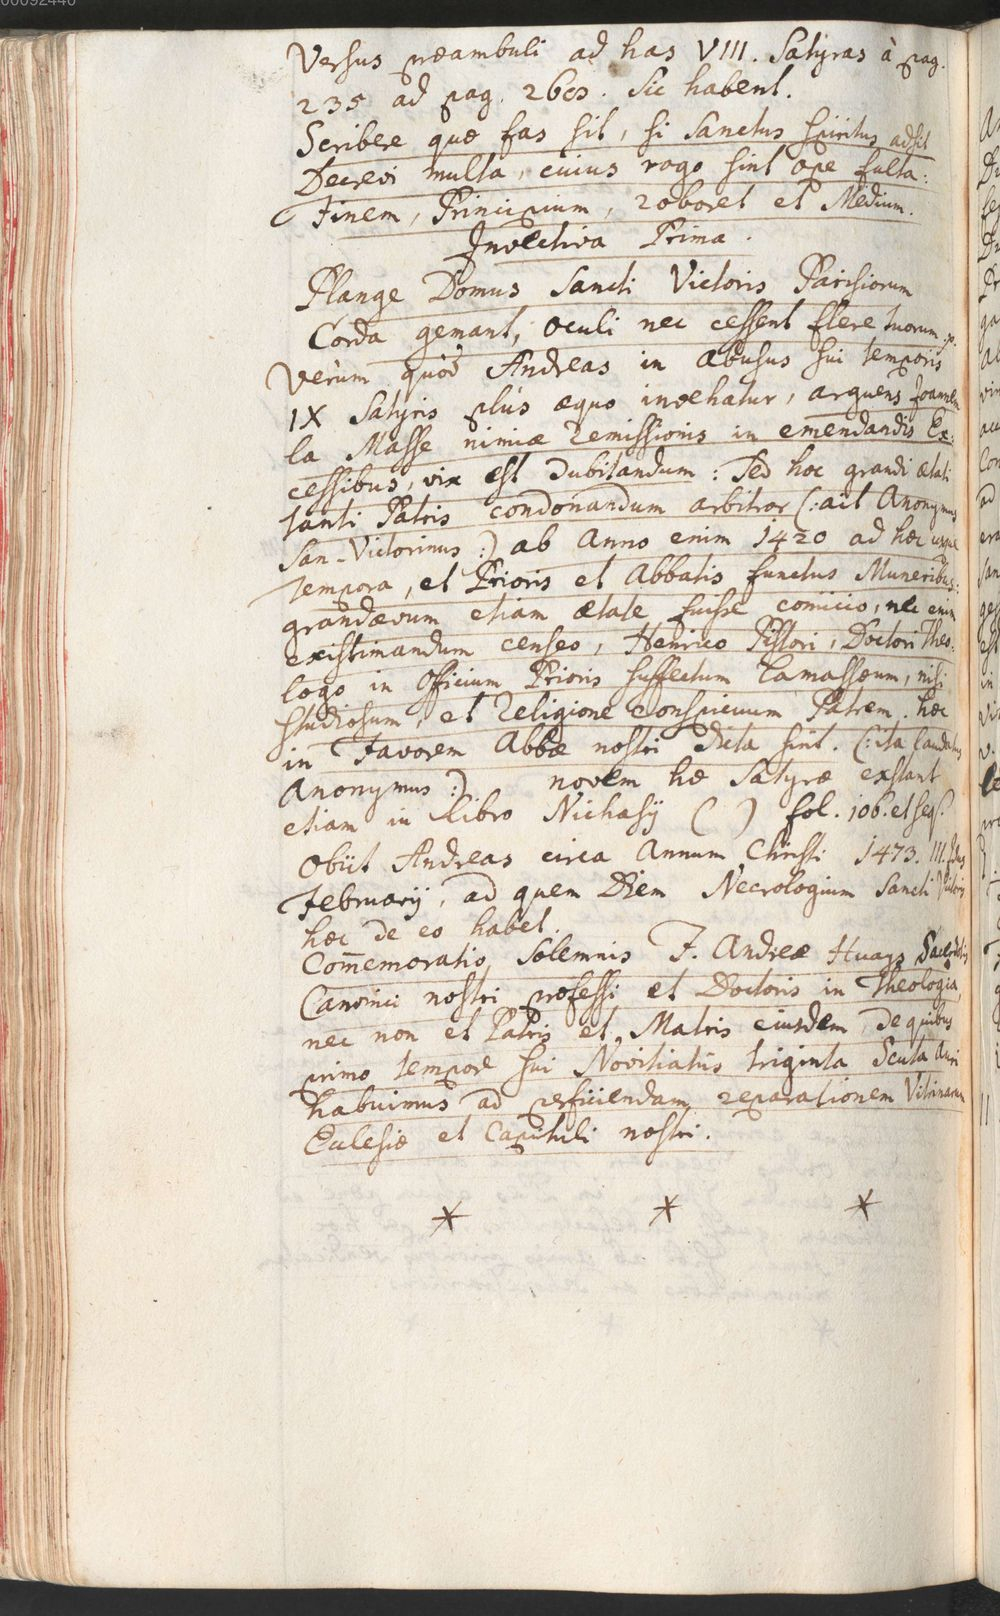 Versus præambuli ad has VIII. Satyras à pag.
235 ad pag. Sic habent.
Scribere quæ fas sit, si Sanctus Spiritus adsit
Decrevi multa, cuius rogo sint ope fulta:
Finem, Principium, roboret et Medium.
Invectiva Prima.
Plange Domus Sancti Victoris Parisiorum
Corda gemant, oculi nec cessent flere tuorum
Verùm quòd Andreas in abusus sui temporis
IX Satyris plùs æquo invehatur, arguens Joannem
la Masse nimiæ remissionis in emendandis Ex:
cessibus, vix est dubitandum: Sed hoc grandi ætati
tanti Patris condonandum arbitror (: ait Anonymus
San-Victorinus :) ab Anno enim 1420 ad hæc usque
tempora, et Prioris et Abbatis functus Muneribus:
grandævum etiam ætate fuisse conîicio, nec enim
existimandum censeo, Henrico Pistori, Doctori Theo:
logo in Officium Prioris suffectum Lamassæum, nisi
studiosum, et Religione conspicuum Patrem. hæc
in Favorem Abbæ nostri dicta sint. (: ita laudatus
Anonymus :) novem hæ Satyræ exstant
etiam in libro Nichasij ( ) fol. 106. et seq.
Obiit Andreas circa Annum Christi 1473. III. Idus
Februarij, ad quem Diem Necrologium Sancti Victoris
hæc de eo habet.
Com̄emoratio Solemnis F. Andreæ Huays Sacerdotis
Canonici nostri professi et Doctoris in Theologia,
nec non et Patris et Matris eiusdem, de quibus
primo tempore sui Novitiatûs triginta Scuta Auri
habuimus ad perficiendam reparationem Vitrinarum
Eclesiæ et Capituli nostri.
* * *